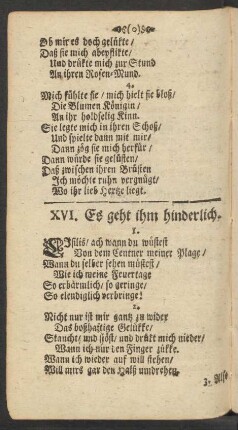 (o)
Ob mir es doch gelükte/
Daß sie mich abepflikte/
Und drükte mich zur Stund
An ihren Rosen-Mund.
4.
Mich fühlte sie/ mich hielt sie bloß/
Die Blumen Königin/
An ihr holdselig Kinn.
Sie legte mich in ihren Schoß/
Und spielte dann mit mir/
Dann zög sie mich herfür/
Dann würde sie gelüsten/
Daß zwischen ihren Brüsten
Ich möchte ruhn vergnügt/
Wo ihr lieb Hertze liegt.
XVI. Es geht ihm hinderlich.
1.
Isilis/ ach wann du wüstest
Von dem Centner meiner Plage/
Wann du selber sehen müstest/
Wie ich meine Feyertage
So erbärmlich/ so geringe/
So elendiglich verbringe!
2.
Nicht nur ist mir gantz zu wider
Das boßhaftige Gelükke/
Staucht/ und stöst/ und drükt mich nieder/
Wann ich nur den Finger zükke.
Wann ich wieder auf will stehen/
Will mirs gar den Halß umdrehen.
3. Also